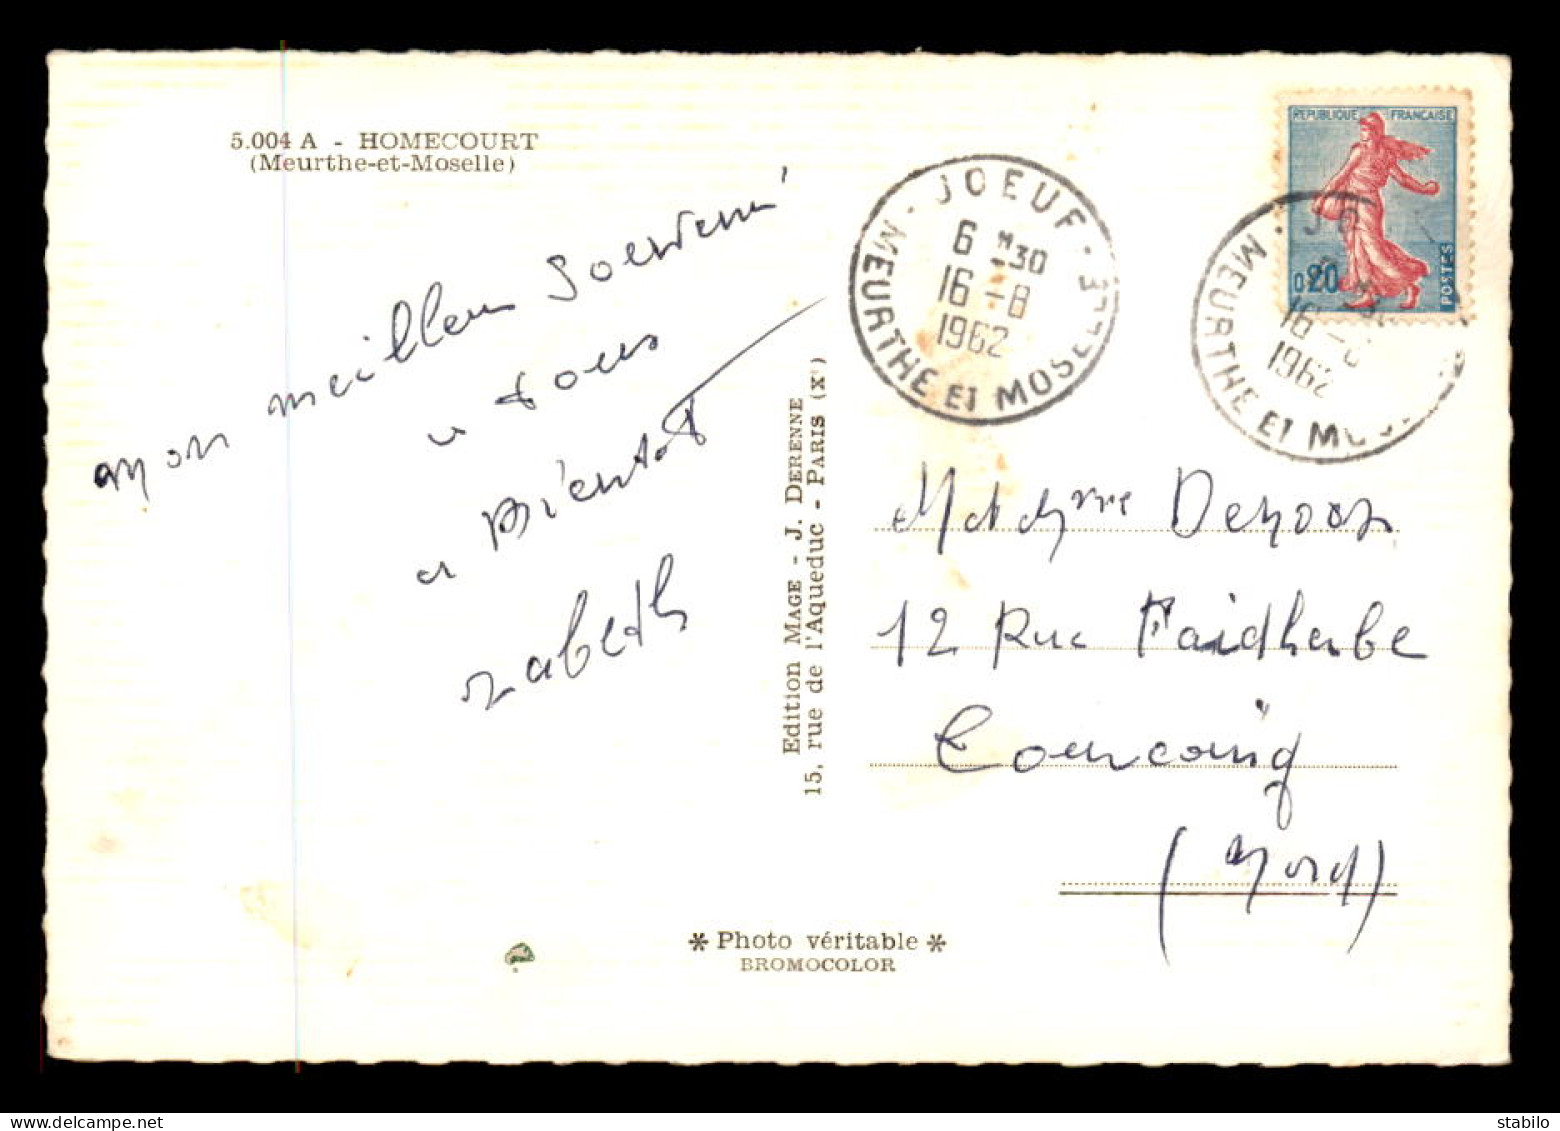 5.004 A - HOMECOURT
(Meurthe-et-Moselle)
mon meilleur souvenir
a tous
a Bientot
zabeth
Edition MAGE - J. DERENNE
15, rue de l'Aqueduc - PARIS (Xe)
* Photo véritable *
BROMOCOLOR
JOEUF
6 H 30
16-8
1962
MEURTHE ET MOSELLE
REPUBLIQUE FRANÇAISE
0,20
POSTES
16-8
1962
MEURTHE ET MOSELLE
Madame
12 Rue Faidherbe
Tourcoing
(Nord)
delcampe.net
stabilo_fr